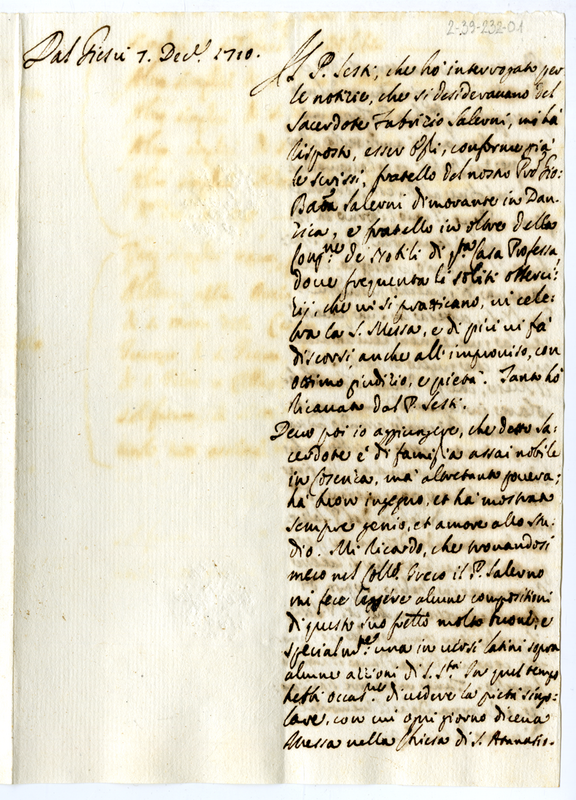 2-39-232-01
Dal Giesù 7. Dec.e 1710.
Il P. Sesti, che hò interrogato per
le notizie, che si desideravano del
Sacerdote Fabrizio Salerni, mi hà
risposto, esser Egli, conforme già
le scrissi, fratello del nostro Pre Gio:
Batta Salerni dimorante in Dan-
zica, e fratello in oltre della
Congne de Nobili di qta Casa Professa,
dove frequenta li soliti esserci-
zij, che vi si pratticano, vi cele-
bra la S. Messa, e di più vi fà
discorsi, anche all'improviso, con
ottimo giudizio, e pietà. Tanto hò
ricavato dal P. Sesti.
Devo poi io aggiungere, che detto Sa-
cerdote è di famiglia assai nobile
in Cosenza, mà altretanto povera;
hà buon ingegno, et hà mostrato
sempre genio, et amore allo stu-
dio. Mi ricordo, che trovandosi
meco nel Collo Greco il P. Salerno
mi fece leggere alcune compositioni
di questo suo frello molto buone, e
specialmte una in versi latini sopra
alcune azzioni di S. Sta. In quel tempo
hebbi occasne di vedere la pietà singo-
lare, con cui ogni giorno diceva
Messa nella Chiesa di S. Atanasio.